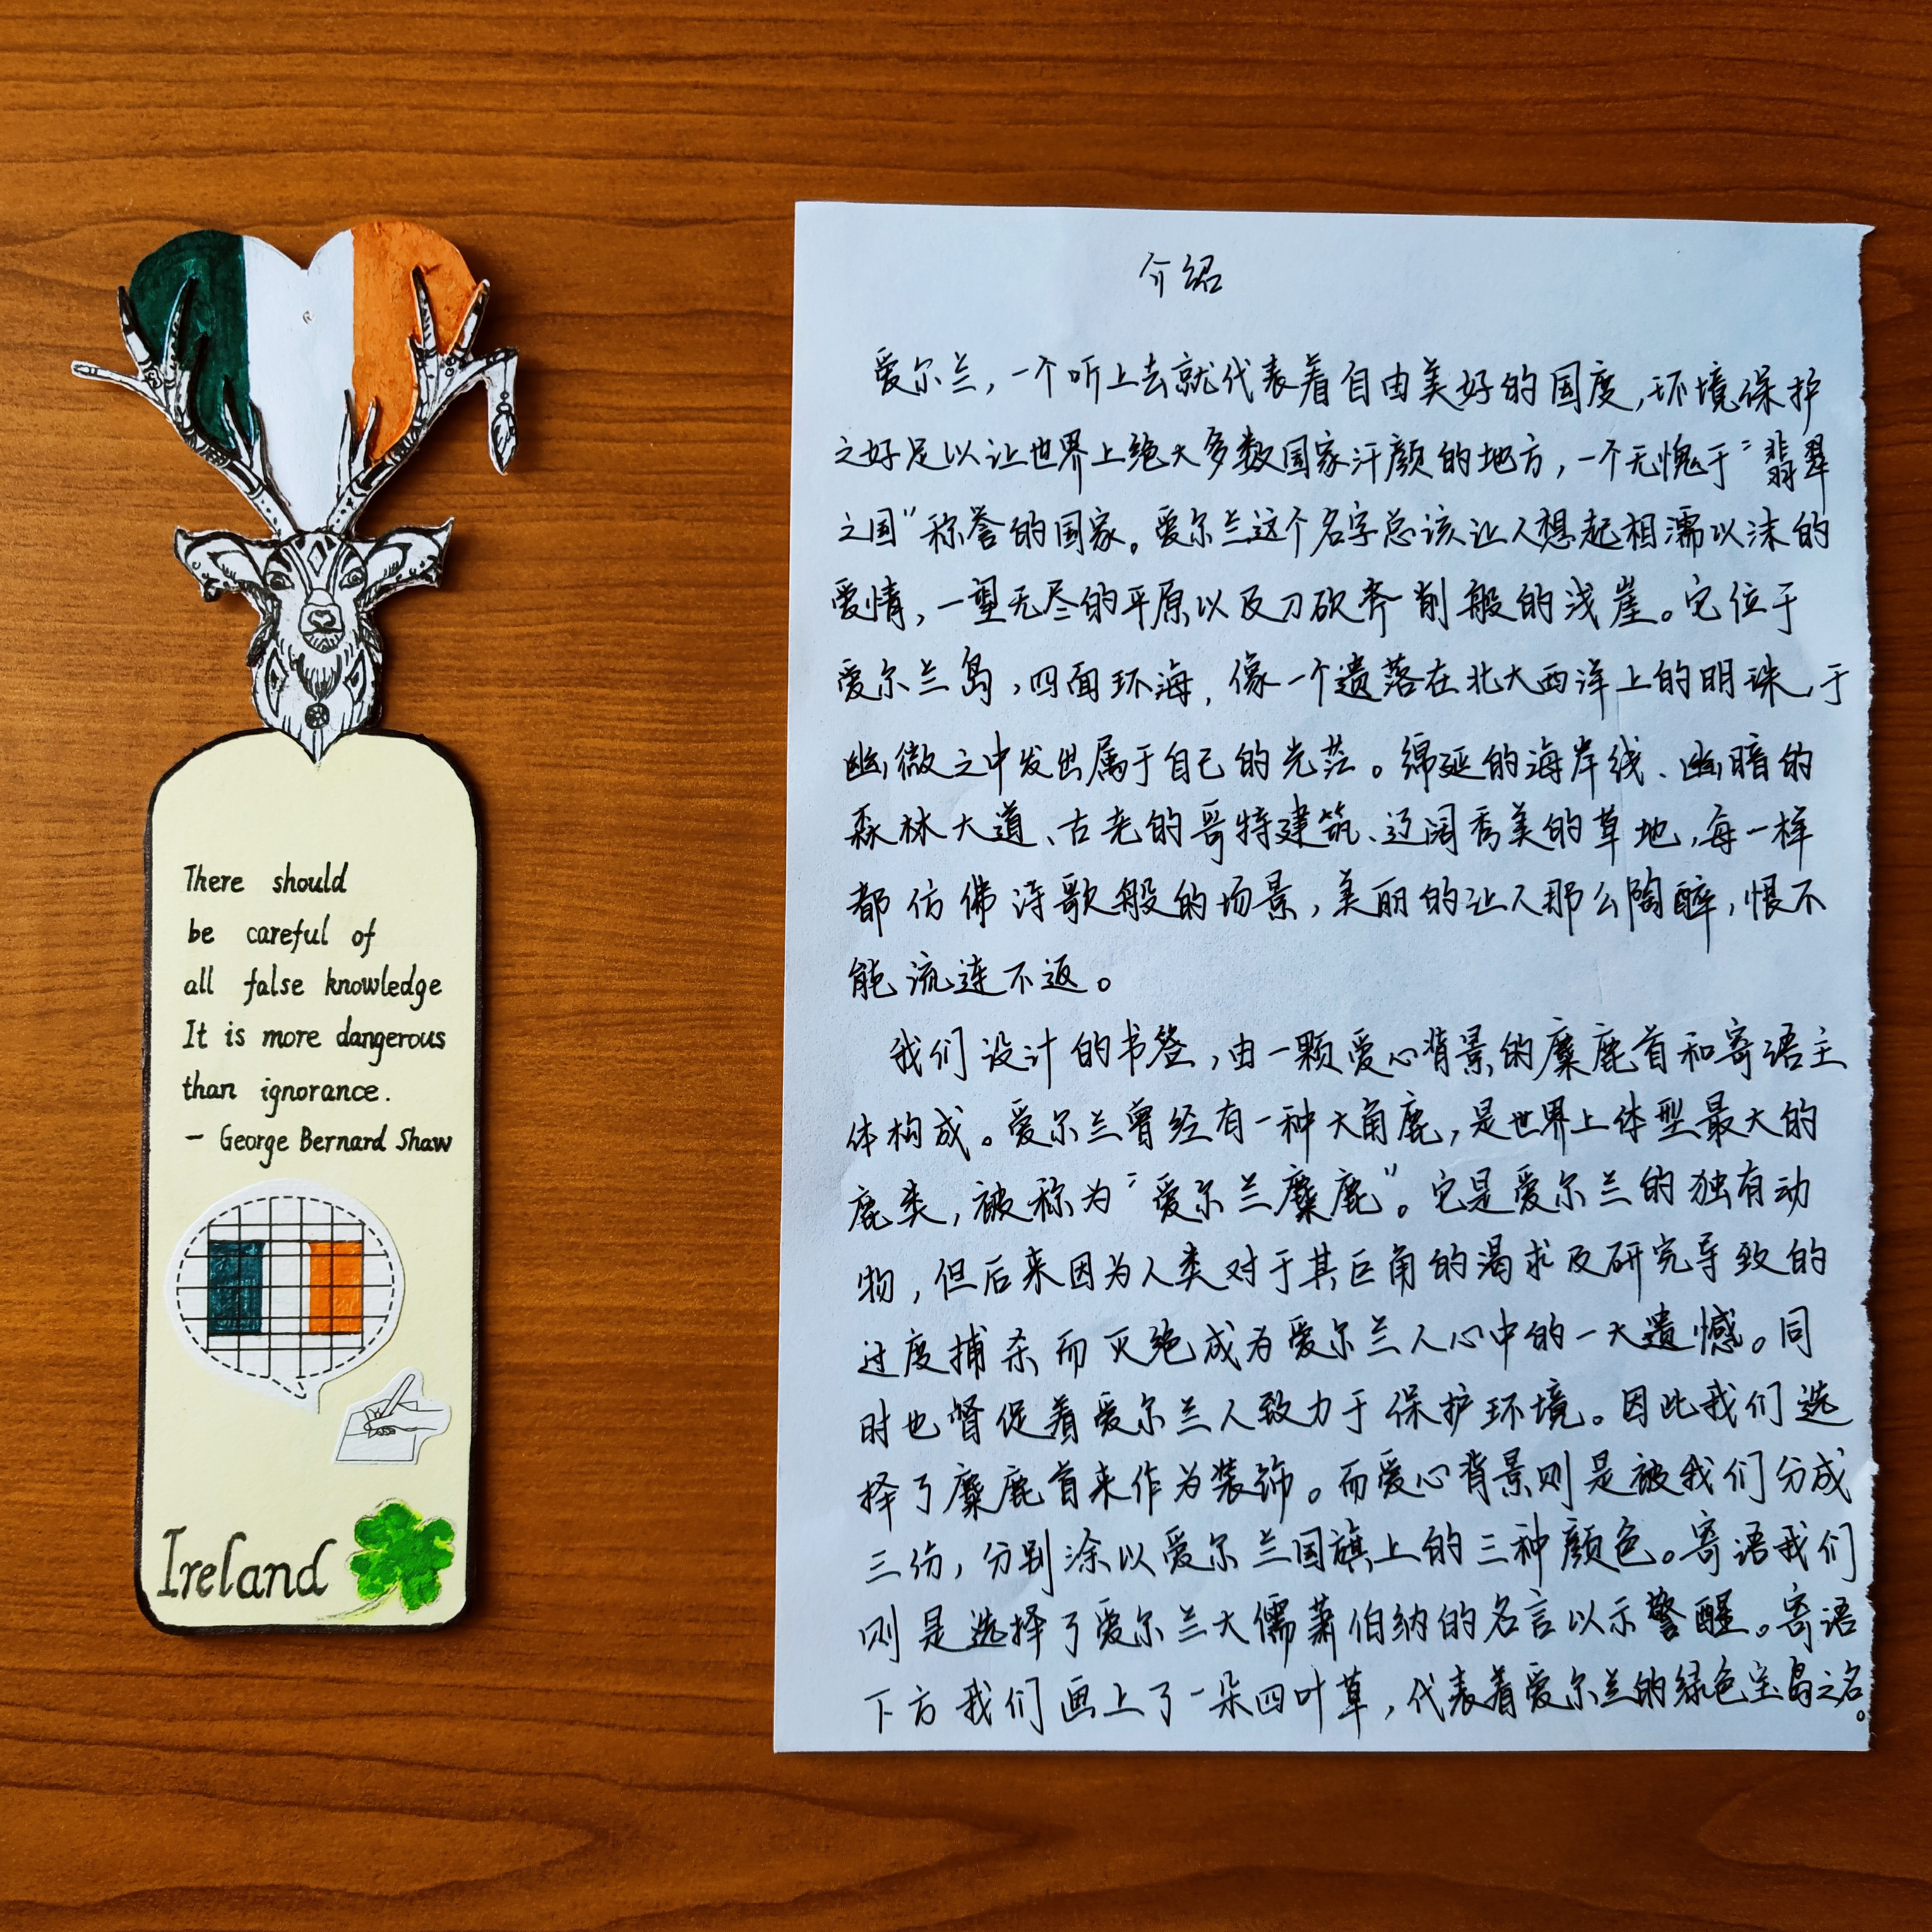 There should
be careful of
all false knowledge
It is more dangerous
than ignorance.
- George Bernard Shaw
Ireland
介绍
爱尔兰，一个听上去就代表着自由美好的国度，环境保护
之好足以让世界上绝大多数国家汗颜的地方，一个无愧于“翡翠
之国”称誉的国家。爱尔兰这个名字总该让人想起相濡以沫的
爱情，一望无尽的平原以及刀砍斧削般的浅崖。它位于
爱尔兰岛，四面环海，像一个遗落在北大西洋上的明珠，于
幽微之中发出属于自己的光茫。绵延的海岸线、幽暗的
森林大道、古老的哥特建筑、辽阔秀美的草地，每一样
都仿佛诗歌般的场景，美丽的让人那么陶醉，恨不
能流连不返。
我们设计的书签，由一颗爱心背景的麋鹿首和寄语主
体构成。爱尔兰曾经有一种大角鹿，是世界上体型最大的
鹿类，被称为“爱尔兰麋鹿”。它是爱尔兰的独有动
物，但后来因为人类对于其巨角的渴求及研究导致的
过度捕杀而灭绝成为爱尔兰人心中的一大遗憾。同
时也督促着爱尔兰人致力于保护环境。因此我们选
择了麋鹿首来作为装饰。而爱心背景则是被我们分成
三份，分别涂以爱尔兰国旗上的三种颜色。寄语我们
则是选择了爱尔兰大儒萧伯纳的名言以示警醒。寄语
下方我们画上了一朵四叶草，代表着爱尔兰的绿色宝岛之名。